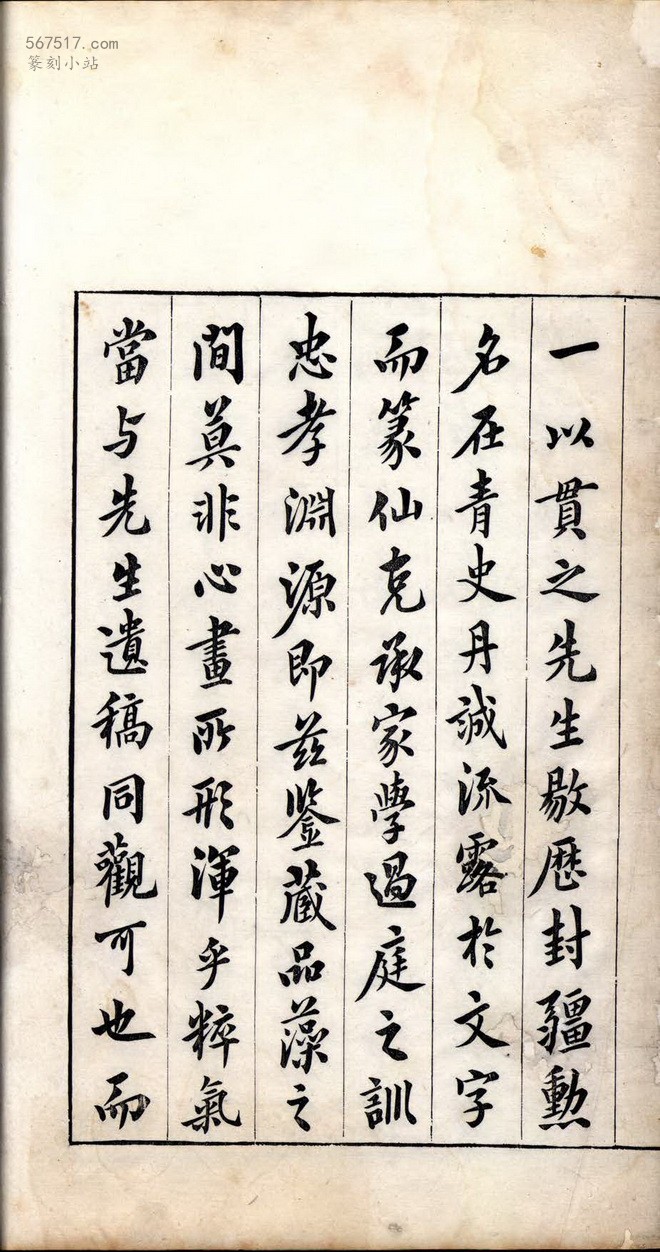 567517.com
篆刻小站
一以貫之先生敭歷封疆勲
名在青史丹誠流露於文字
而篆仙克承家學過庭之訓
忠孝淵源即茲鑒藏品藻之
間莫非心畫所形渾乎粹氣
當与先生遺稿同觀可也而